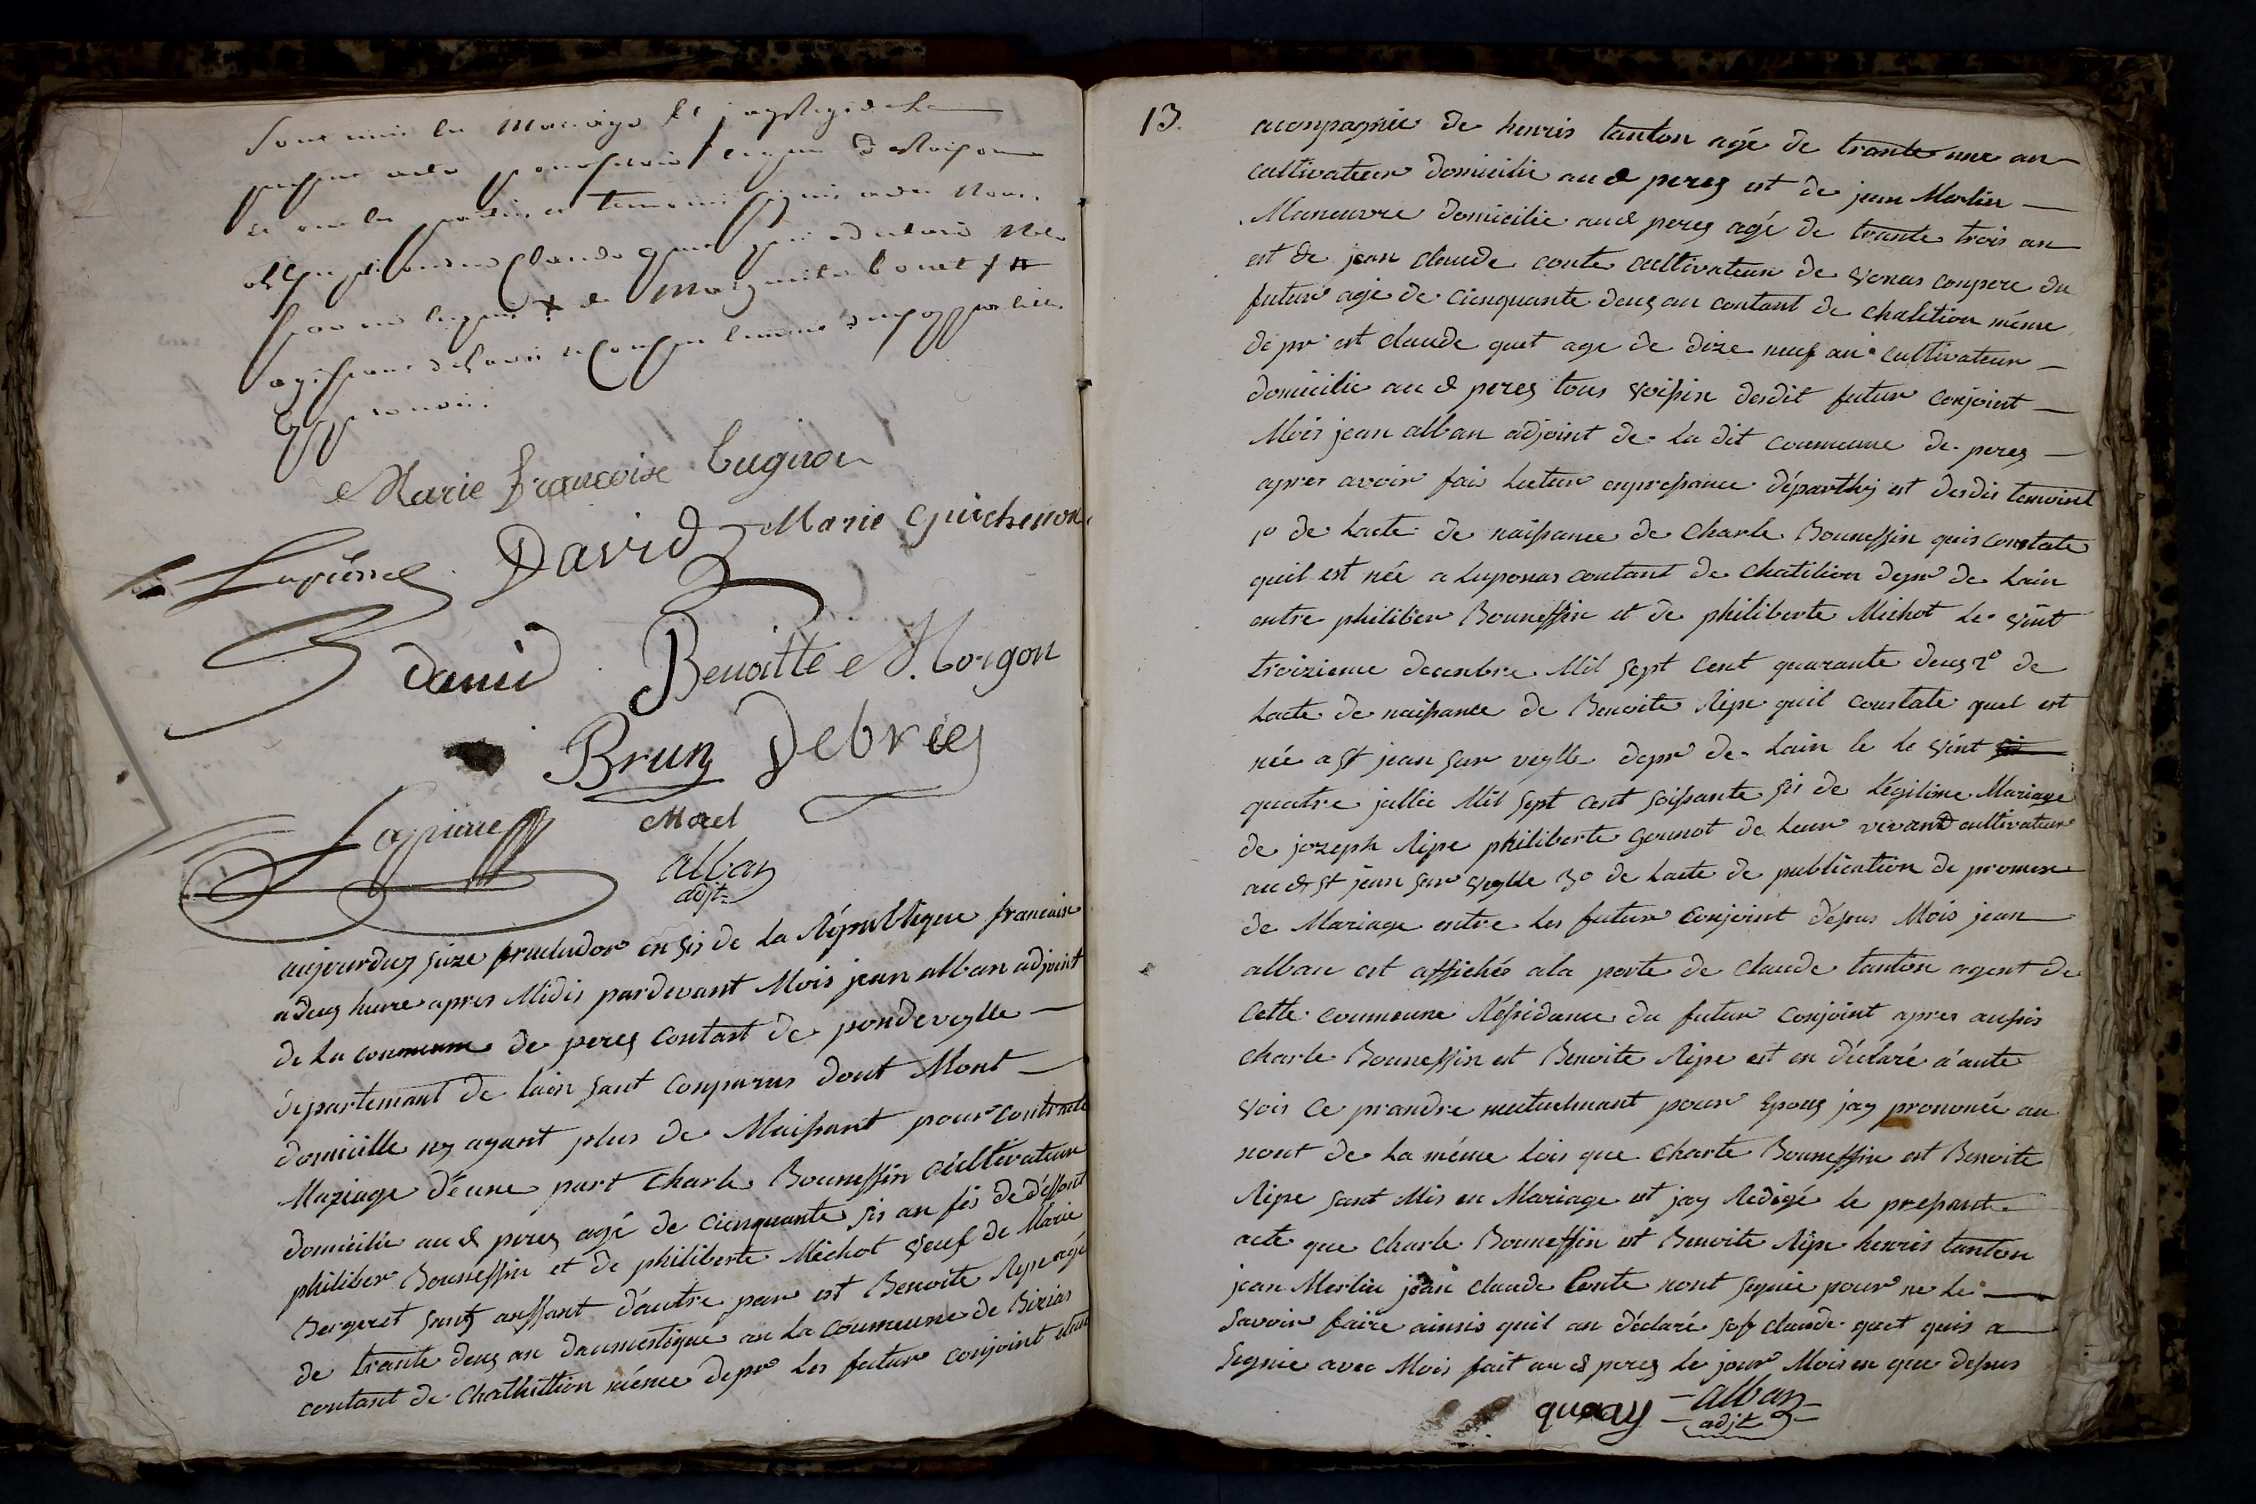 sont unis en Mariage et j'ay Redigé le
et que les parties et temoins signé avec Nous
Marie françoise Cugnon
David Marie Guichenon
Lapierre
David Benoitte Morgon
Brun Debries
Lapierre Morel
alban
adjt
aujourduy size frutudor en sis de la République francaise
a deuz hure apres Midis pardevant Mois jean alban adjoint
de La commune de perez Contant de pondeveylle
départemant de lain sont Conparus dont Mont
domicille ny ayant plus de Maissant pour contracte
Mariage déune part Charle Bouneffin cultivateur
domicilié au d perez agé de cienquante sis an fis de déffont
philiber Bouneffin et de philiberte Michot veuf de Marie
Bergeret sans anffant dautre par est Benoite Ripe agé
de trante deuz an daumestique an La coumeune de Bizias
contant de Chathillion méme depr Les futur conjoint etant
13.
aconpagnié de henris tanton agé de trante une an
cultivateur domicilié au d perez est de jean Merlin
Maneuvre domicilié aud perez agé de trante trois an
est de jean claude conte cultivateur de Vonas conpere du
futur agé de cienquante deuz an contant de chalition méme
depr est claude quet age de dize neuf an cultivateur
domicilié au d perez tous voisin desdit futur conjoint
Mois jean alban adjoint de La dit coumeune de perez
apres avoir fai Lectur anpresance départhy est desdis temoint
1º de Lacte de naissance de Charle Bouneffin quis constate
quil est née a Luponas contant de Chatilion depr de Lain
entre philiber Bouneffin et de philiberte Michot Le vint
troizieme decenbre Mil sept cent quarante deuz 2º de
Lacte de naissance de Benoite Ripe quil constate quel est
née a st jean sur veylle depr de Lain le Le vint
quatre jullié Mil sept cent soissante sis de Légitime Mariage
de jozeph Ripe philiberte gounot de Leur vivant cultivateur
au d st jean sur veylle 3º de Lacte de publication de promese
de Mariage entre Les futur conjoint depar Mois jean
alban est affichés ala porte de claude tanton agent de
cette coumeune Résidance du futur conjoint apres aussis
charle Bouneffin est Benoite Ripe est en déclaré a aute
vois ce prandre mutuelmant pour Epouz jay prononcé au
nont de La méme Lois que Charle Bouneffin est Benoite
Ripe sant Mis en Mariage est jay Redigé le presant
acte que Charle Bouneffin est Benoite Ripe henris tanton
jean Merlin jean claude Conte nont signié pour ne Le
savoir faire ainsis quil an déclaré sof claude quet quis a
signié avec Mois fait au d perez Le jour Mois en que desus
alban
adjt